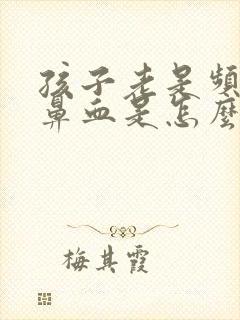 孩子老是頻
鼻血是怎麼
梅其霞